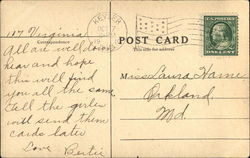 117 Virginia
All are well down
hear and hope
this will find
you all the same.
Tell the girls
will send them
cards later
Love Bertie
KEYSER
Correspondence
POST CARD
This side for address
Miss Laura Hame
Oakland,
Md.
ONE CENT